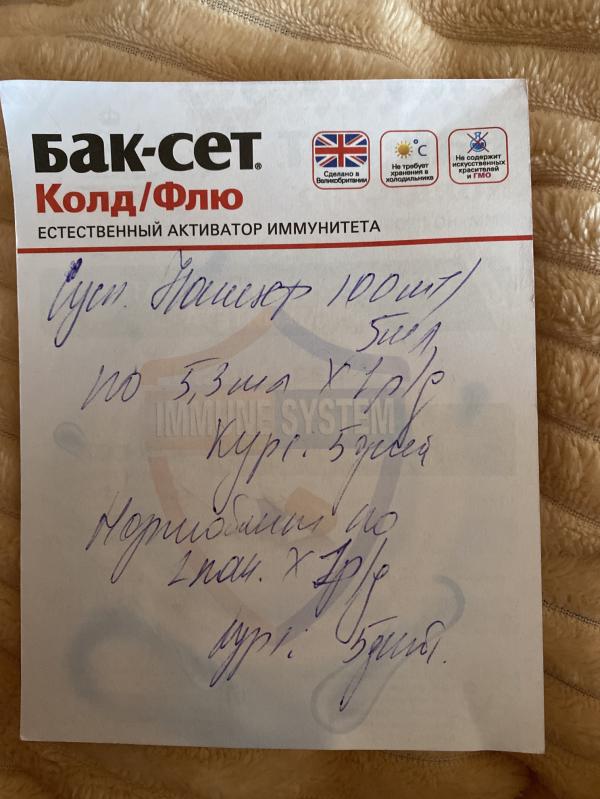 Бак-сет®
Колд/Флю
ЕСТЕСТВЕННЫЙ АКТИВАТОР ИММУНИТЕТА
Сделано в
Великобритании
°C
Не требует
хранения в
холодильнике
Не содержит
искусственных
красителей
и ГМО
Сусп. 100мг/
5мл
по 5,3мл х 1р/д
IMMUNE SYSTEM
Курс: 5 дней
по
х 1р/д
курс: 5дней.